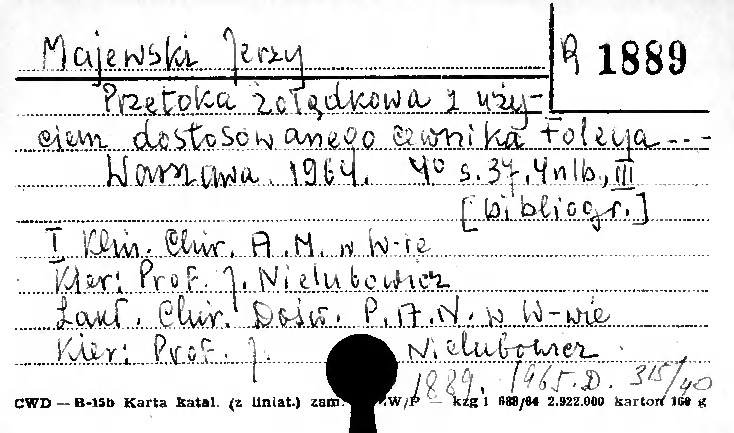 Majewski Jerzy
R 1889
Przetoka żołądkowa z uży-
ciem dostosowanego cewnika Foleya...-
Warszawa. 1964. 4° s.37, 4nlb., III
[bibliogr.]
I Klin. Chir. A.M. w W-ie
Kier: Prof. J. Nielubowicz
Zakł. Chir. Dośw. P.A.N. w W-wie
Kier: Prof. J. Nielubowicz
1889. 1965.D. 315/40
CWD — B-15b Karta katal. (z liniat.) zam. W/P — kzg i 688/64 2.922.000 karton 160 g